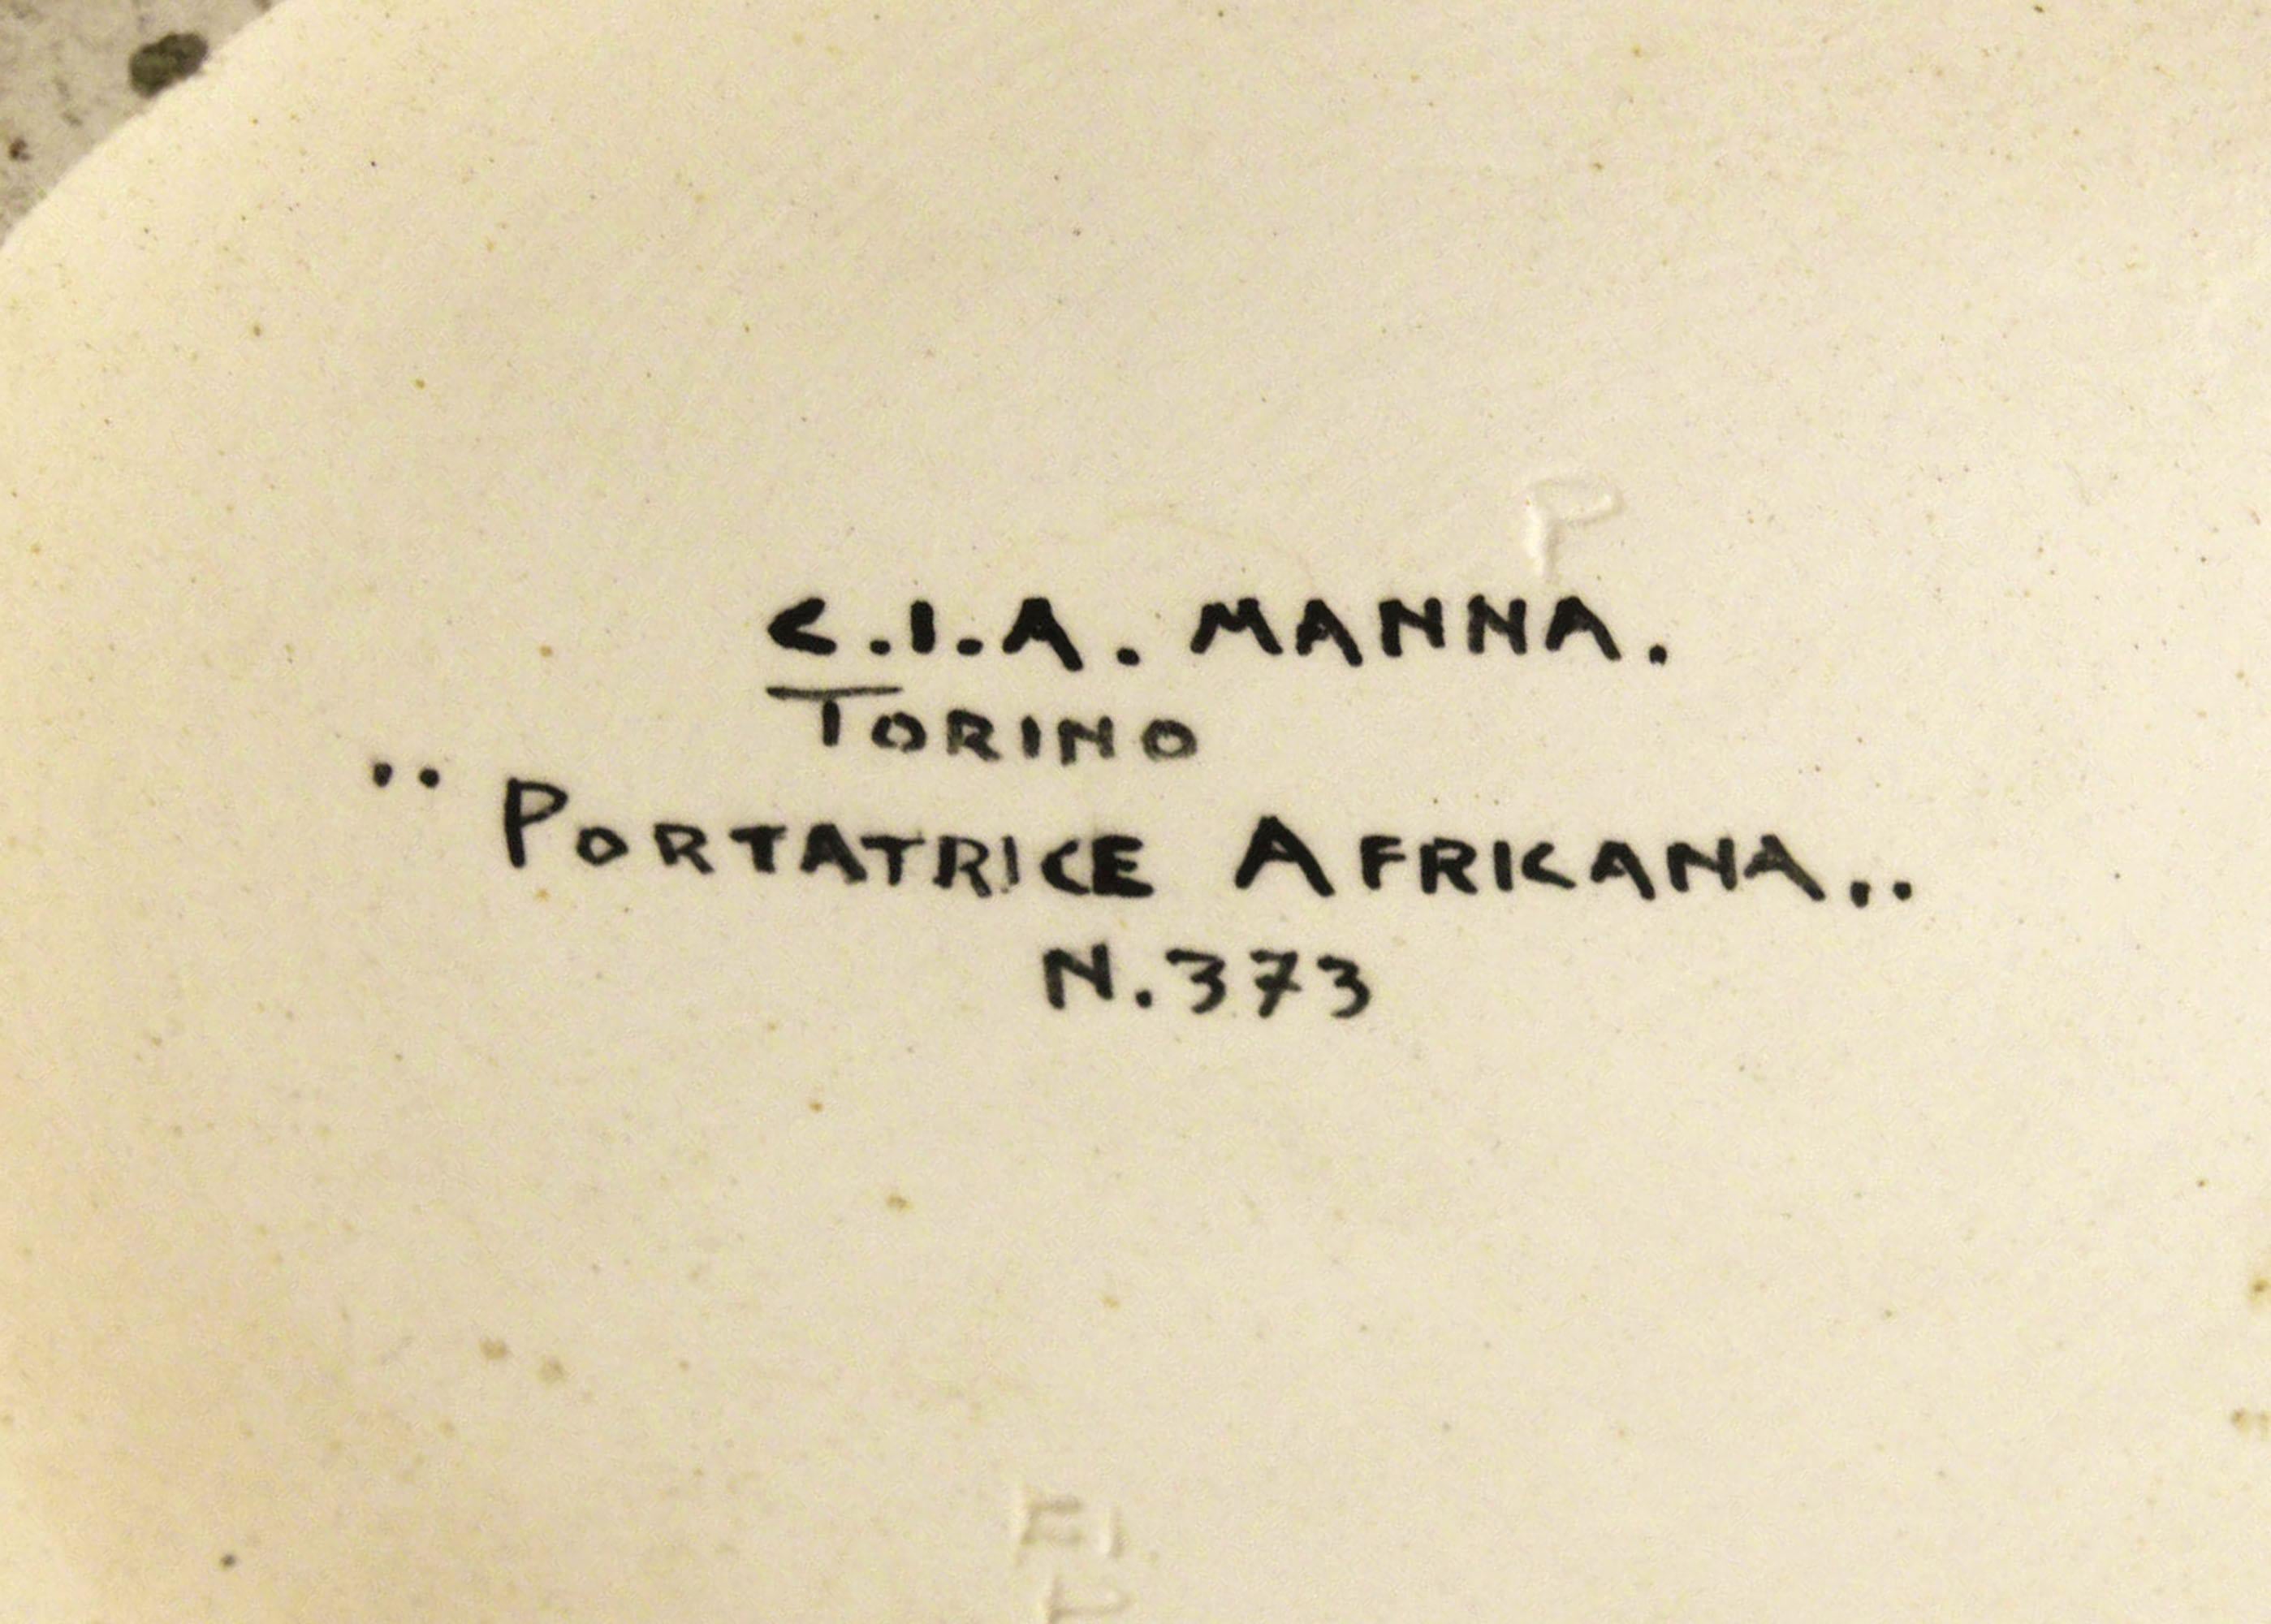 C.I.A. MANNA.
TORINO
„ PORTATRICE AFRICANA „
N.373
P